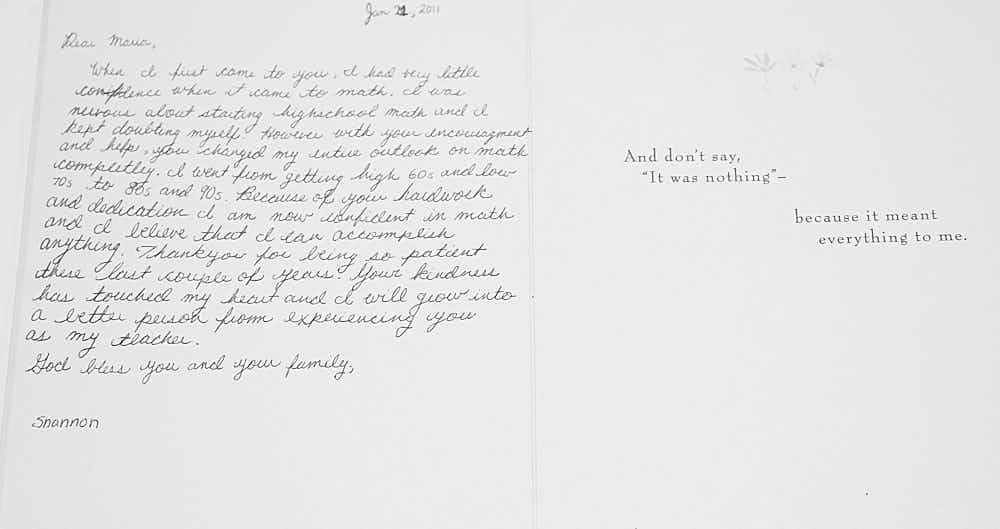 Jan 21, 2011
Dear Maria,
When I first came to you, I had very little
confidence when it came to math. I was
nervous about starting highschool math and I
kept doubting myself. However with your encouragment
and help, you changed my entire outlook on math
completley. I went from getting high 60s and low
70s to 80s and 90s. Because of your hardwork
and dedication I am now confident in math
and I believe that I can accomplish
anything. Thankyou for being so patient
these last couple of years. Your kindness
has touched my heart and I will grow into
a better person from experiencing you
as my teacher.
God bless you and your family,
Shannon
And don't say,
"It was nothing"–
because it meant
everything to me.